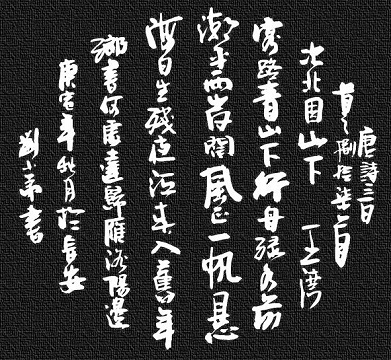 唐詩三百
首之捌拾柒首
次北固山下 王灣
客路青山下行舟綠水前
潮平兩岸闊風正一帆懸
海日生殘夜江春入舊年
鄉書何處達歸雁洛陽邊
庚寅年秋月於長安
劉小書